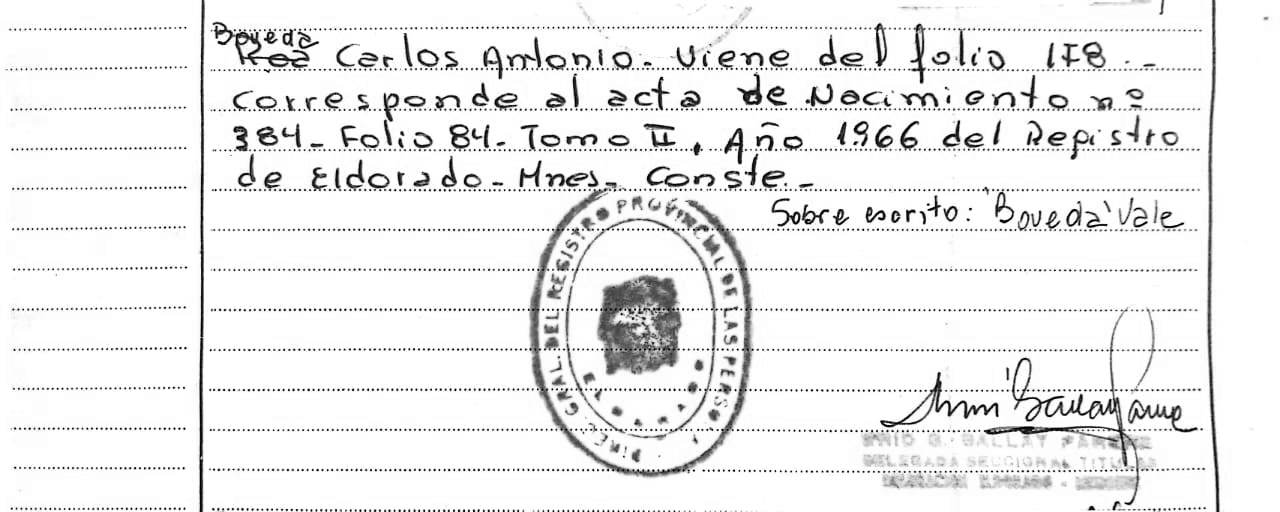 Boveda
Carlos Antonio. Viene del folio 178.-
Corresponde al acta de Nacimiento nº
384- Folio 84- Tomo II, Año 1966 del Registro
de Eldorado- Mnes- Conste.-
Sobre escrito: "Boveda" Vale
DIREC. GRAL. DEL REGISTRO PROVINCIAL DE LAS PERSO
G. BALLAY
DELEGADA SECCIONAL TITULAR